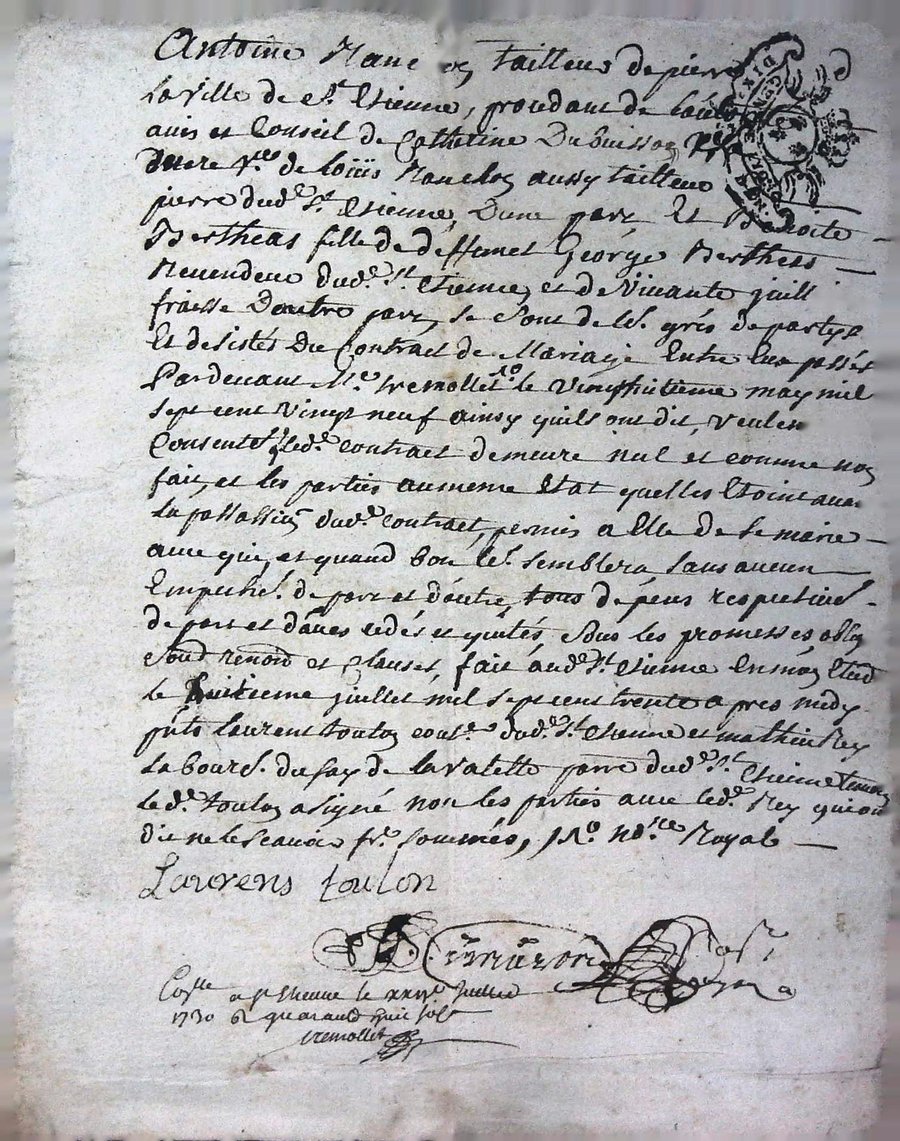 Antoine tailleur de pierre
La ville de St. Etienne, procedant de
avis et Conseil de Catherine Dubuisson
vve. de Loüis aussy tailleur
pierre dud. St. Etienne, D'une part, Et Benoite
Bertheas fille de deffunct George Bertheas
Revendeur dud. St. Etienne, et de Vivante
fraisse D'autre part, se sont de le. grés departys
Et desistés Du Contract de Mariage Entre Eux passés
Pardevant Me. tremollet no. le vingthuitieme may mil
sept cent vingt neuf ainsy quils ont dit, veulen
Consentet q. led. contract demeure nul et comme non
fait, et les parties au meme Etat quelles Etoint avan
La passassion dud. contract, permis a Elle de se marier
avec qui, et quand bon le. semblera sans aucun
Empeche. de part et d'autre, tous depens respective.
de part et d'autres cedés et quités sous les promesses oblig
et clauses, fait aud. St. Etienne En mon Etude
le huitieme juillet mil sept cent trente apres midy
pnts Laurent toulon dud. St. Etienne et mathieu Rey
Labour. du fay de la valette parre. dud. St. Etienne temoin
Led. toulon a signé non les parties avec led. Rey qui ont
dit ne le scavoir no. Royal
Laurens toulon
a St Etienne le juillet
1730
tremollet